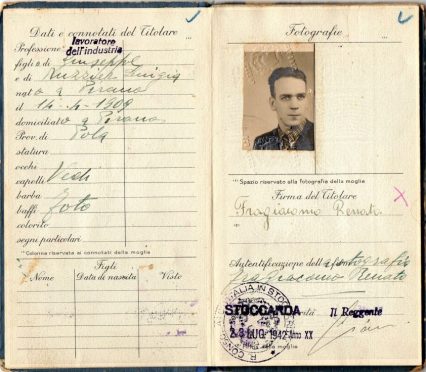 Dati e connotati del Titolare
Professione lavoratore dell'industria
figlio di Giuseppe
e di Ruzzier Luigia
nato a Pirano
il 14-4-1909
domiciliato a Pirano
Prov. di Pola
statura
occhi
capelli Vedi
barba
baffi foto
colorito
segni particolari
(*) Colonna riservata ai connotati della moglie
Figli
Nome Data di nascita Visto
Fotografie
(*) Spazio riservato alla fotografia della moglie
Firma del Titolare
Fragiacomo Renato
Autenticazione della fotografia
Fragiacomo Renato
ITALIA IN STOCCARDA
STOCCARDA
Il Reggente
23 LUG. 1942 Anno XX
della moglie